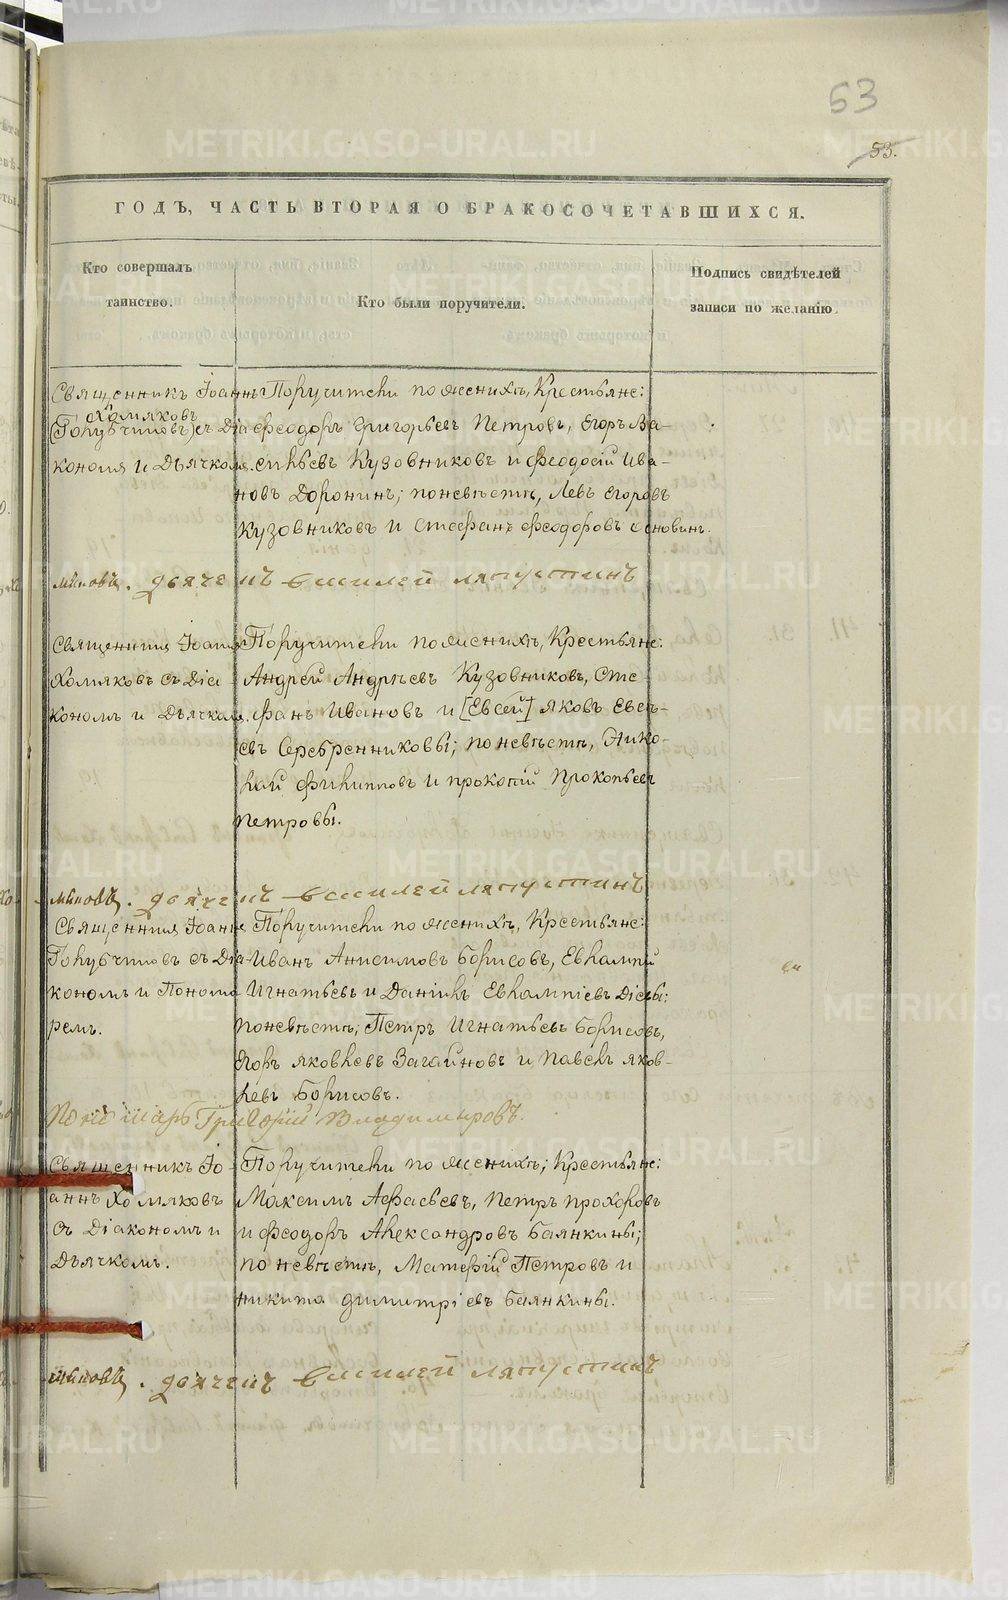 53
53.
ГОДЪ, ЧАСТЬ ВТОРАЯ О БРАКОСОЧЕТАВШИХСЯ.
Кто совершалъ
таинство.
Кто были поручители.
Подпись свидѣтелей
записи по желанію.
Священникъ Іоаннъ
Хомяковъ
(Голубчиковъ) съ Діа
кономъ и Дьячкомъ.
Поручители по женихѣ, Крестьяне:
Феодоръ Григорьевъ Петровъ, Егоръ Ва-
сильевъ Кузовниковъ и Феодосій Ива-
новъ Доронинъ; по невѣстѣ, Левъ Егоровъ
Кузовниковъ и Стефанъ Феодоровъ Основинъ.
дьячекъ василей ляпустинъ
Священникъ Іоаннъ
Хомяковъ съ Діа
кономъ и Дьячкомъ.
Поручители по женихѣ, Крестьяне:
Андрей Андреевъ Кузовниковъ, Сте
фанъ Ивановъ и [Евсей] Яковъ Евсѣ-
евъ Серебренниковы; по невѣстѣ, Нико-
лай Филипповъ и Прокопій Прокопьевъ
Петровы.
дьячекъ василей ляпустинъ
Священникъ Іоаннъ
Голубчиковъ съ Діа
кономъ и Понома
ремъ.
Поручители по женихѣ, Крестьяне:
Иванъ Анисимовъ Борисовъ, Евлампій
Игнатьевъ и Даніилъ Евлампіевъ Діевы;
по невѣстѣ; Петръ Игнатьевъ Борисовъ,
Егоръ Яковлевъ Загайновъ и Павелъ Яков-
левъ Борисовъ.
Пономарь Григорій Владимировъ.
Священникъ Іо
аннъ Хомяковъ
съ Діакономъ и
Дьячкомъ.
Поручители по женихѣ; Крестьяне:
Максимъ Аѳасьевъ, Петръ Прохоровъ
и Феодоръ Александровъ Баянкины;
по невѣстѣ, Матѳій Петровъ и
Никита Димитріевъ Баянкины.
дьячекъ василей ляпустинъ
METRIKI.GASO-URAL.RU